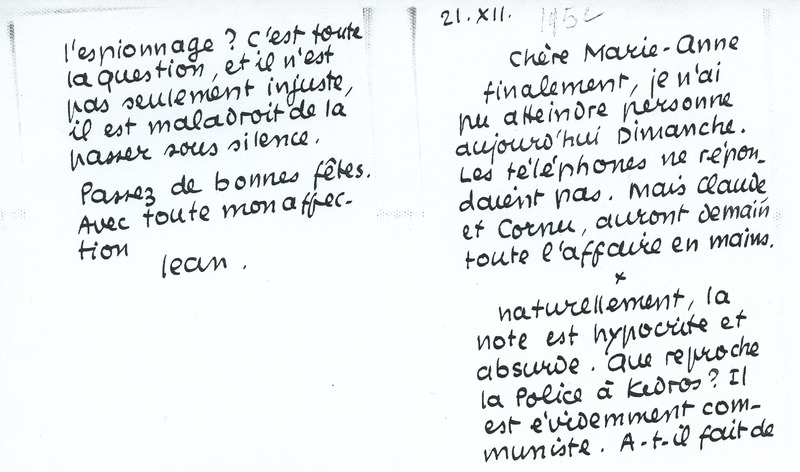 21.XII.
Chère Marie-Anne
finalement, je n'ai
pu atteindre personne
aujourd'hui Dimanche.
Les téléphones ne répon-
daient pas. Mais Claude
et Cornu, auront demain
toute l'affaire en mains.
x
naturellement, la
note est hypocrite et
absurde. Que reproche
la Police à Kedros? Il
est évidemment com-
muniste. A-t-il fait de
l'espionnage? C'est toute
la question, et il n'est
pas seulement injuste,
il est maladroit de la
passer sous silence.
Passez de bonnes fêtes.
Avec toute mon affec-
tion
Jean.